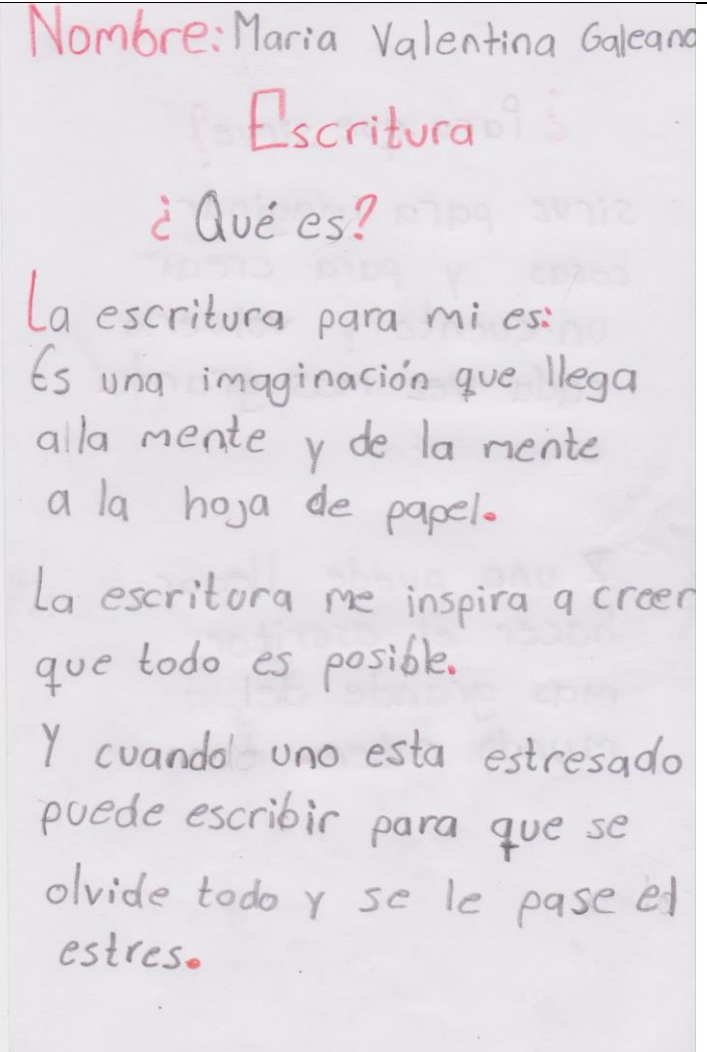 Nombre: Maria Valentina Galeano
Escritura
¿Qué es?
La escritura para mi es:
Es una imaginación que llega
alla mente y de la mente
a la hoja de papel.
La escritora me inspira a creer
que todo es posible.
Y cuando uno esta estresado
puede escribir para que se
olvide todo y se le pase el
estres.